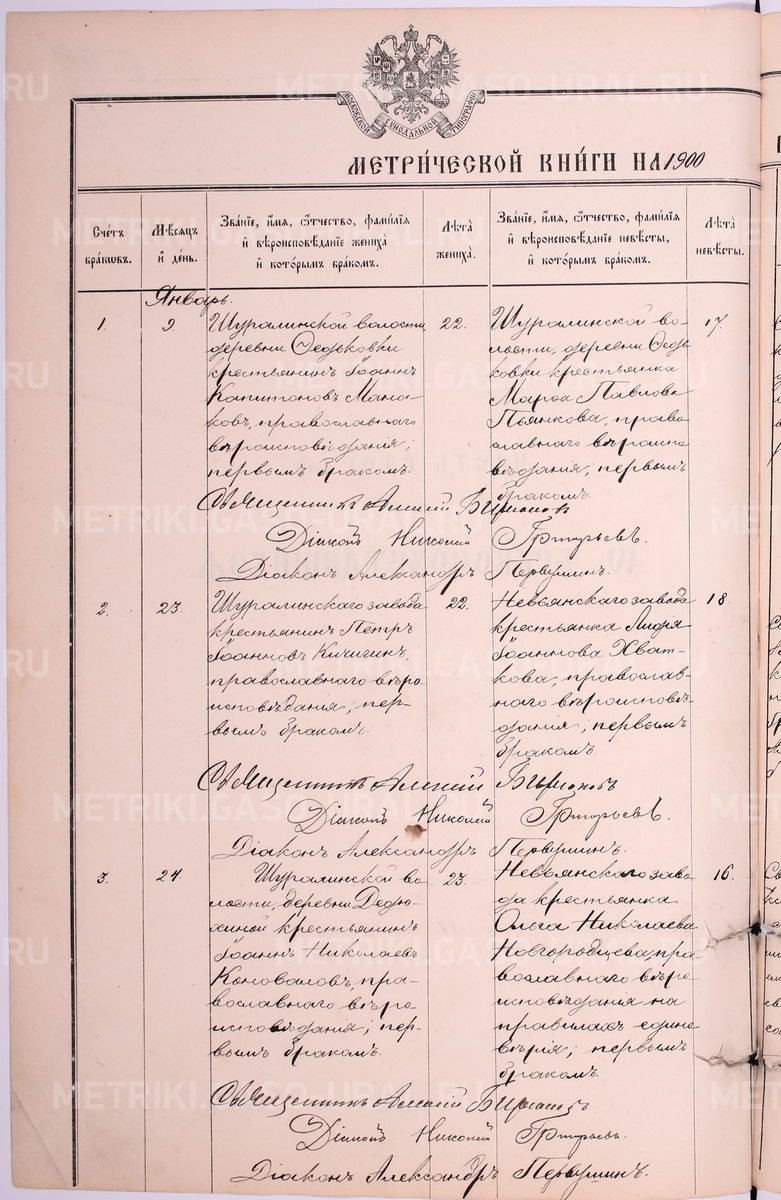 МОСКОВСКОЙ СѴНОДАЛЬНОЙ ТИПОГРАФІИ
МЕТРИ́ЧЕСКОЙ КНИ́ГИ НА 1900
Сче́тъ бра́кѡвъ.
Мѣ́сѧцъ и҆ де́нь.
Зва́нїе, и҆́мѧ, ѻ҆́тчество, фамилїѧ и҆ вѣроисповѣ́данїе жениха̀ и҆ кото́рымъ бра́комъ.
Лѣ́та жениха̀.
Зва́нїе, и҆́мѧ, ѻ҆́тчество, фами́лїѧ и҆ вѣроисповѣ́данїе невѣ́сты, и҆ кото́рымъ бра́комъ.
Лѣ́та невѣ́сты.
Январь.
1.
9
Шуралинской волости,
деревни Ѳедьковки
крестьянинъ Іоаннъ
Капитоновъ Манa-
ковъ, православнаго
вѣроисповѣданія;
первымъ бракомъ.
22.
Шуралинской во-
лости, деревни Ѳедь
ковки крестьянка
Марѳа Павлова
Пьянкова, право
славнаго вѣроиспо
вѣданія; первымъ
бракомъ.
17.
Священникъ Алексій
Діаконъ Николай Григорьевъ.
Діаконъ Александръ Первушинъ.
2.
23.
Шуралинскаго завода
крестьянинъ Петръ
Іоанновъ Кичигинъ,
православнаго вѣро
исповѣданія; пер-
вымъ бракомъ.
22.
Невьянскаго завода
крестьянка Лидія
Іоаннова Хват-
кова, православ-
наго вѣроисповѣ-
данія; первымъ
бракомъ.
18.
Священникъ Алексій
Діаконъ Николай Григорьевъ.
Діаконъ Александръ Первушинъ.
3.
24.
Шуралинской во-
лости, деревни Дедю-
хиной крестьянинъ
Іоаннъ Николаевъ
Коноваловъ, пра-
вославнаго вѣро
исповѣданія; пер-
вымъ бракомъ.
23.
Невьянскаго заво-
да крестьянка
Ольга Николаева
Новгородцева, пра-
вославнаго вѣро
исповѣданія на
правилахъ едино
вѣрія; первымъ
бракомъ.
16.
Священникъ Алексій
Діаконъ Николай Григорьевъ.
Діаконъ Александръ Первушинъ.
METRIKI.GASO-URAL.RU